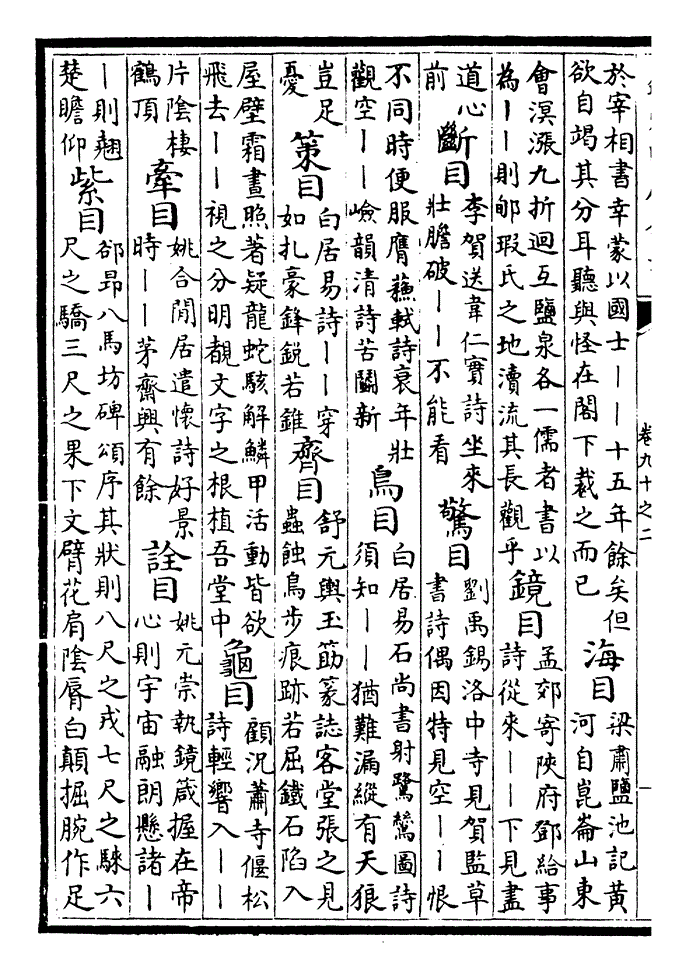 於宰相書幸蒙以國士——十五年餘矣但
欲自竭其分耳聽與怪在閣下裁之而已
海目
梁肅鹽池記黃
河自崑崙山東
會溟漲九折迴互鹽泉各一儒者書以
為——則郇瑕氏之地瀆流其長觀乎
鏡目
孟郊寄陝府鄧給事
詩從來——下見盡
道心
前
斷目
李賀送韋仁實詩坐來
壯膽破——不能看
驚目
劉禹錫洛中寺見賀監草
書詩偶因特見空——恨
不同時便服膺蘓軾詩衰年壯
觀空——嶮韻清詩苦鬭新
鳥目
白居易石尚書射鷺鷥圖詩
須知——猶難漏縱有天狼
豈足
憂
策目
白居易詩——穿
如札豪鋒銳若錐
齊目
舒元輿玉筯篆誌客堂張之見
蟲蝕鳥步痕跡若屈鐵石陷入
屋壁霜晝照著疑龍蛇駭解鱗甲活動皆欲
飛去——視之分明覩文字之根植吾堂中
龜目
顧況蕭寺偃松
詩輕響入——
片陰棲
鶴頂
牽目
姚合閒居遣懷詩好景
時——茅齋興有餘
詮目
姚元崇執鏡箴握在帝
心則宇宙融朗懸諸—
—則翹
楚瞻仰
紫目
郤昂八馬坊碑頌序其狀則八尺之戎七尺之騋六
尺之驕三尺之果下文臂花肩陰脣白顛掘腕作足
卷九十之二